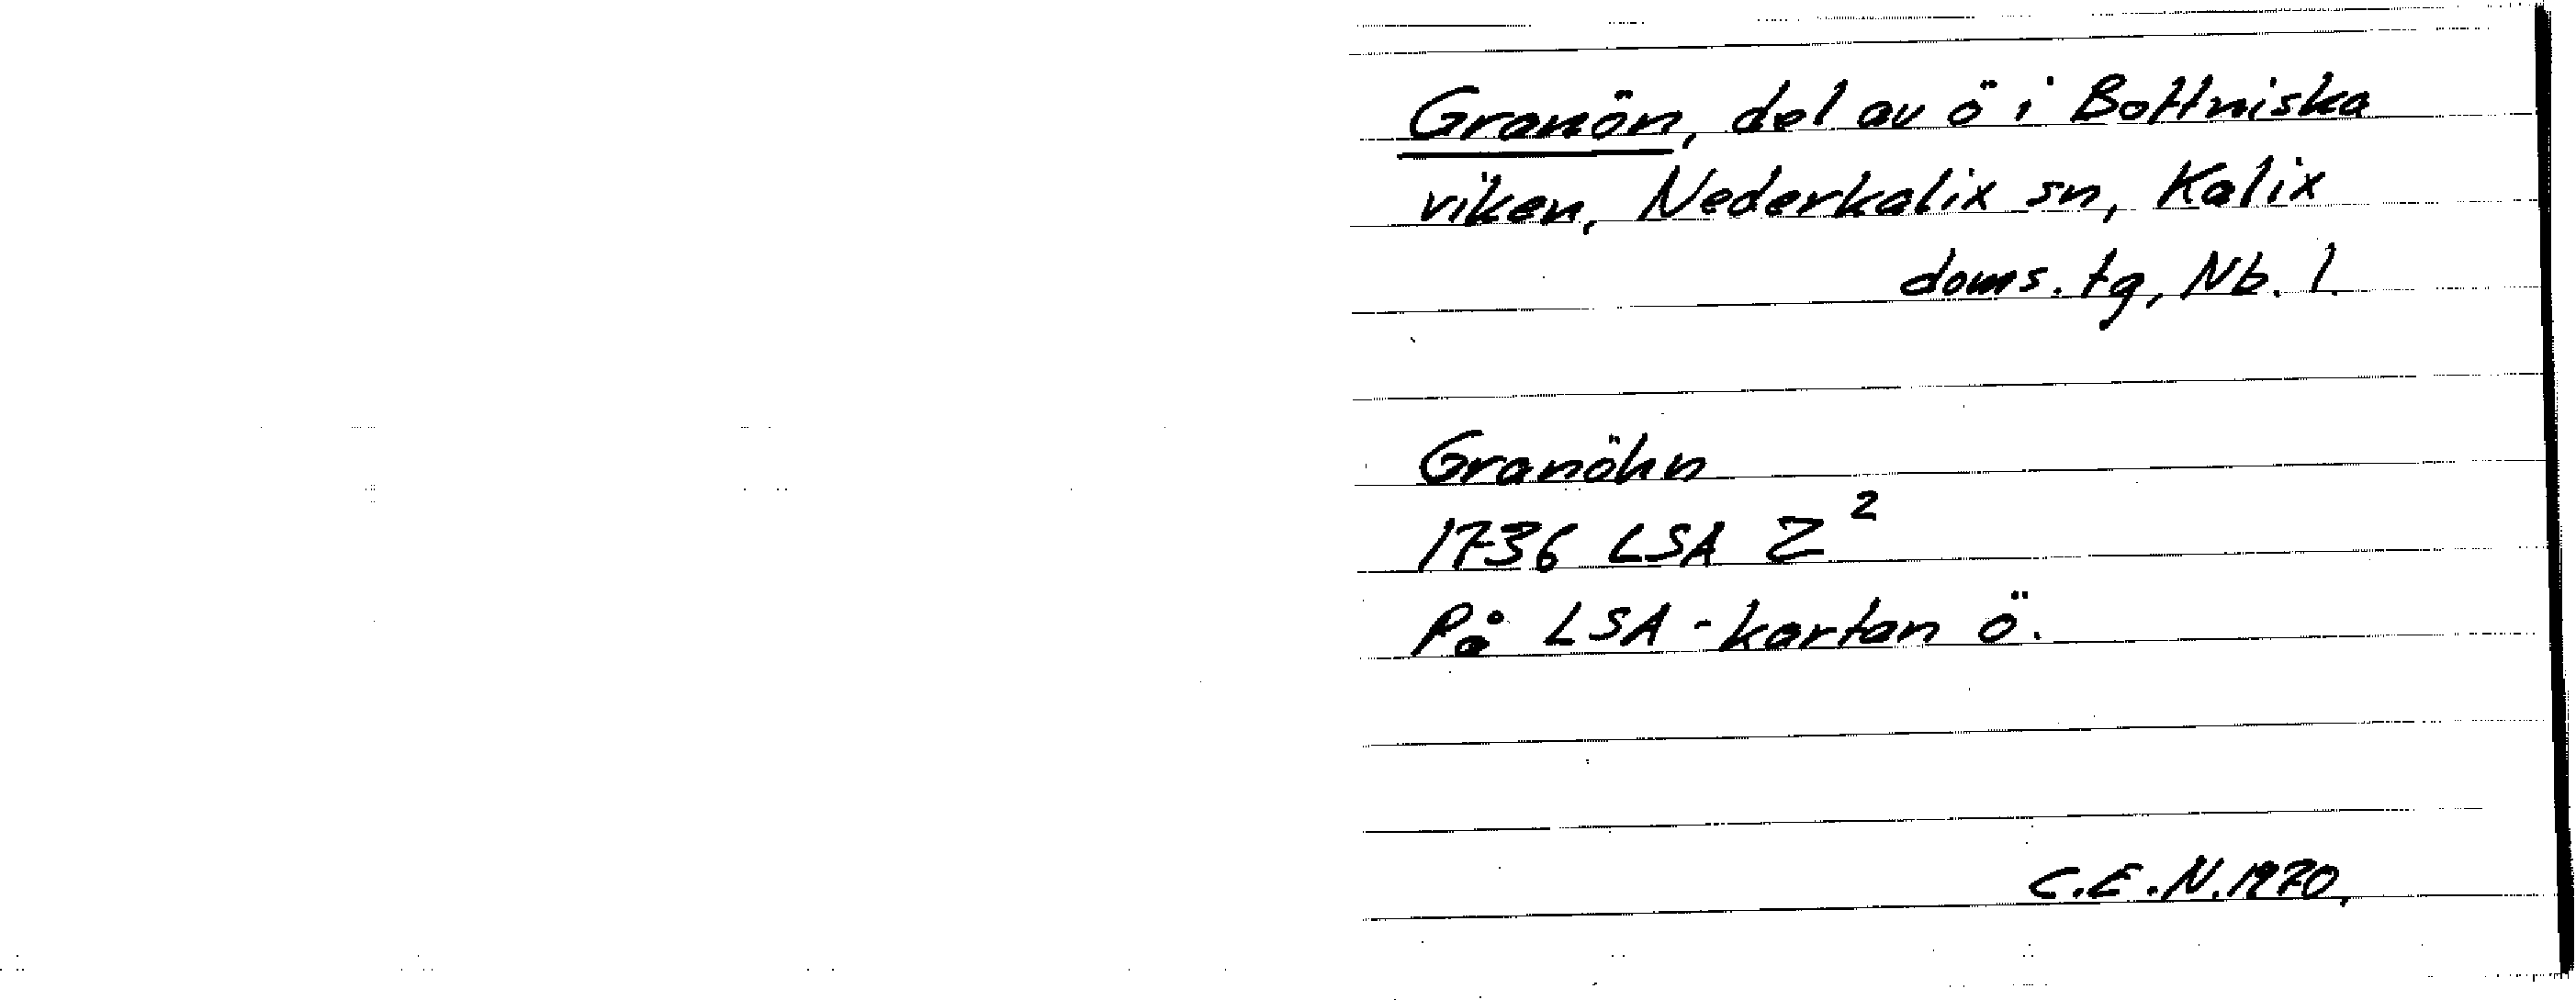 Granön, del av ö i Bottniska
viken, Nederkalix sn, Kalix
doms. tg, Nb. l.
Granöhn
1736 LSA Z²
På LSA-kartan ö.
C.E.N. 1970.